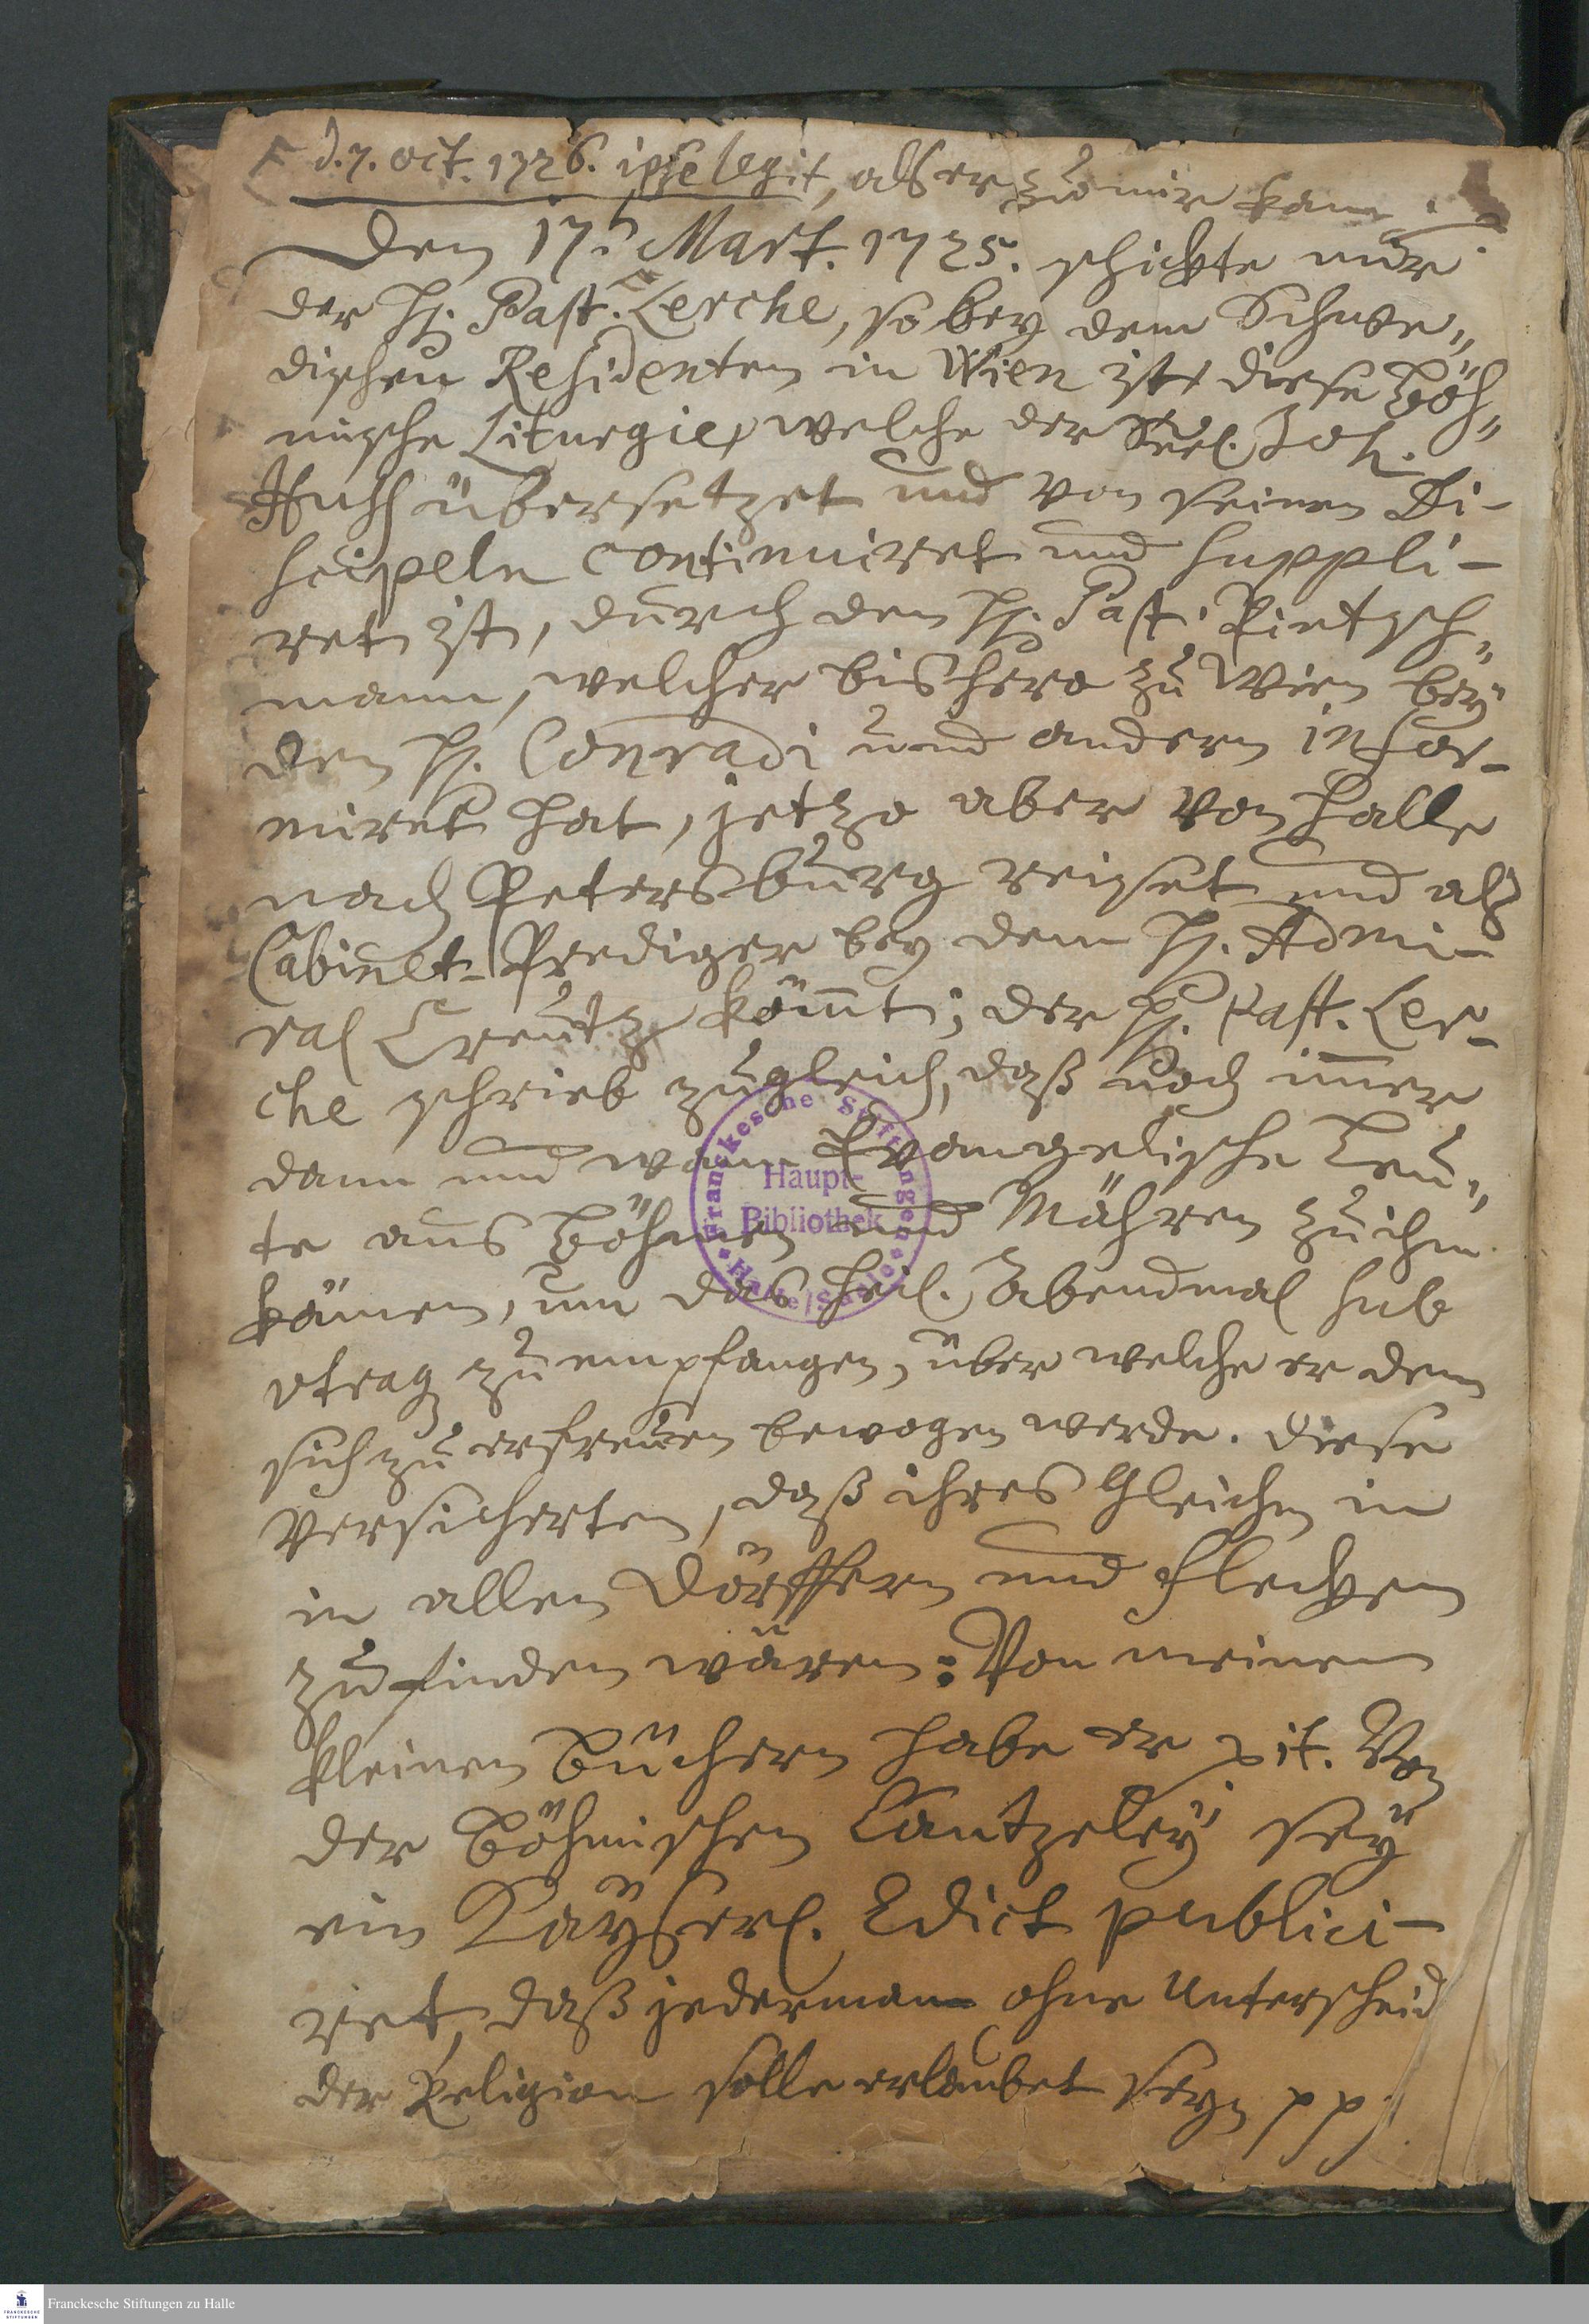 F d. 7. oct. 1726. ipse legit, als er zu mir kam.
Den 17. Mart. 1725. schickte mir
der H. Past. Lerche, so bey dem Schwe„
dischen Residenten in Wien ist, diese Böh„
mische Liturgie, welche der Seel. Joh.
Huss übersetzet und von seinen Di-
scipeln continuiret und suppli-
ret ist, durch den H. Past. Pintzsch„
mann, welcher bishero zu Wien bey
den H. Conradi und andern infor-
miret hat, jetzo aber von Halle
nach Petersburg reiset und als
Cabinet-Prediger bey dem H. Admi-
ral Creutz kömt; der H. Past. Ler-
che schrieb zugleich, daß noch imer
dann und wann Evangelische Leu„
te aus Böhmen und Mähren zu ihm
kämen, um das heil. Abendmal sub
utraq zu empfangen, über welche er denn
sich zu erfreuen bewogen werde. Diese
versicherten, daß ihres Gleichen in
in allen Dörffern und Flecken
zu finden wären: Von meinen
kleinen Büchern habe er pit. Von
der Böhmischen Cantzeley sey
ein Kayserl. Edict publici-
ret, daß jedermann ohne Unterscheid
der Religion solle erlaubet seyn pp.
Franckesche Stiftungen
Haupt-
Bibliothek
Halle/Saale
Franckesche Stiftungen zu Halle
FRANCKESCHE
STIFTUNGEN